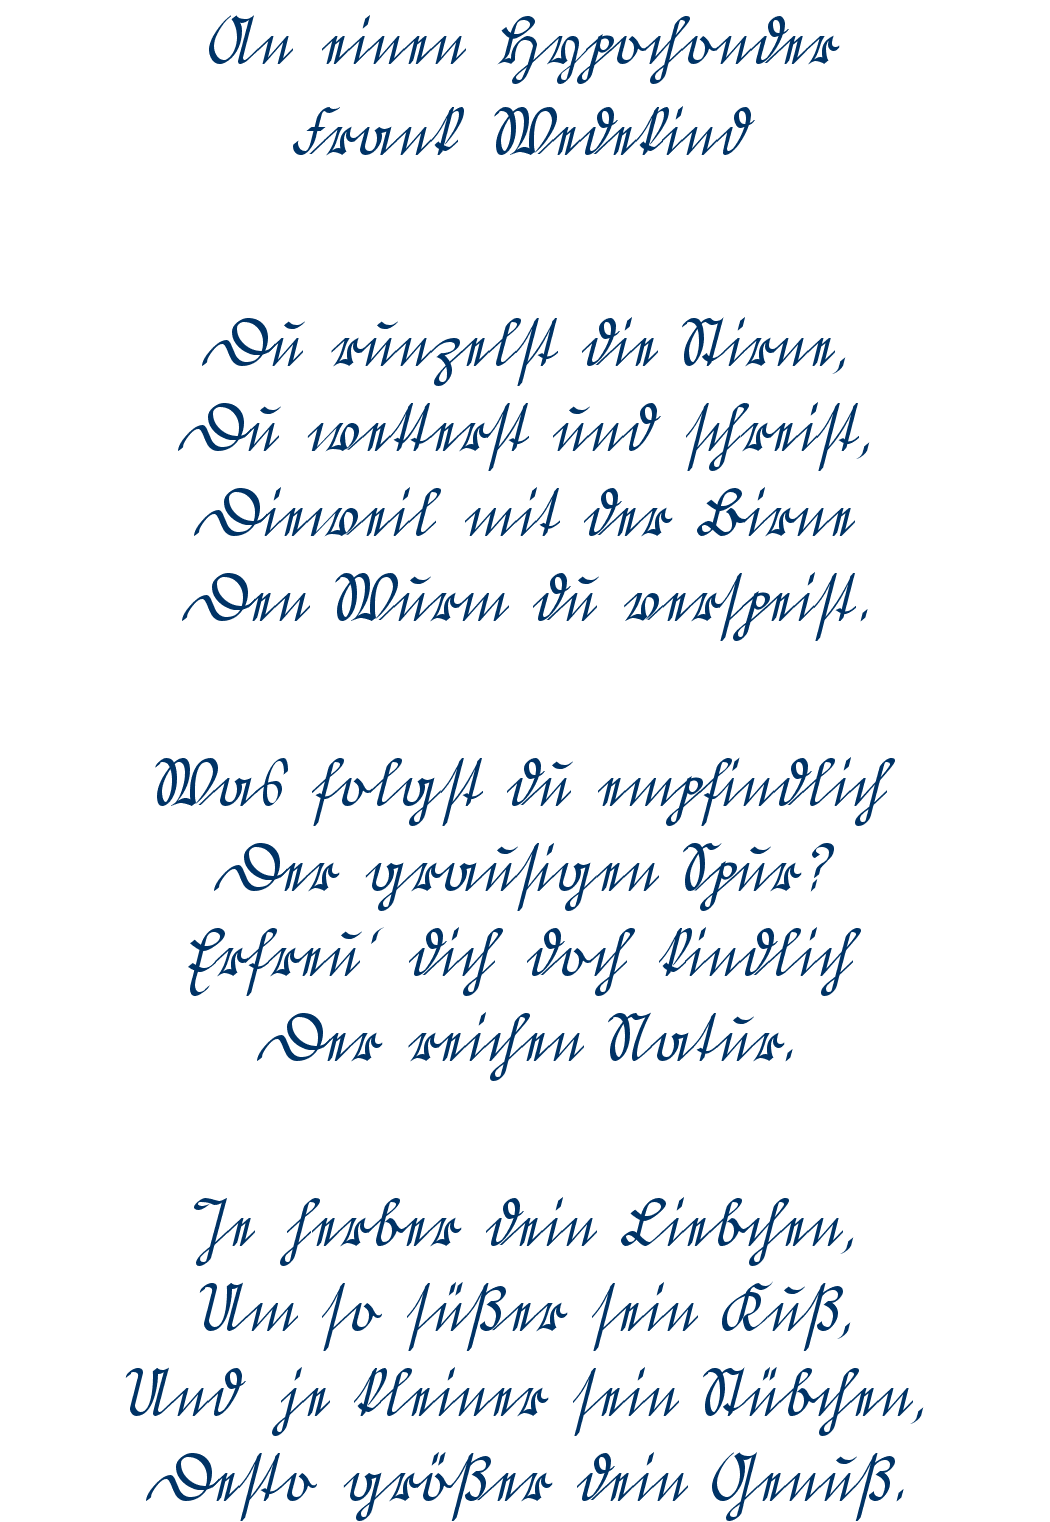 An einen Hypochonder
Frank Wedekind
Du runzelst die Stirne,
Du wetterst und schreist,
Dieweil mit der Birne
Den Wurm du verspeist.
Was folgst du empfindlich
Der grausigen Spur?
Erfreu' dich doch kindlich
Der reichen Natur.
Je herber dein Liebchen,
Um so süßer sein Kuß,
Und je kleiner sein Stübchen,
Desto größer dein Genuß.